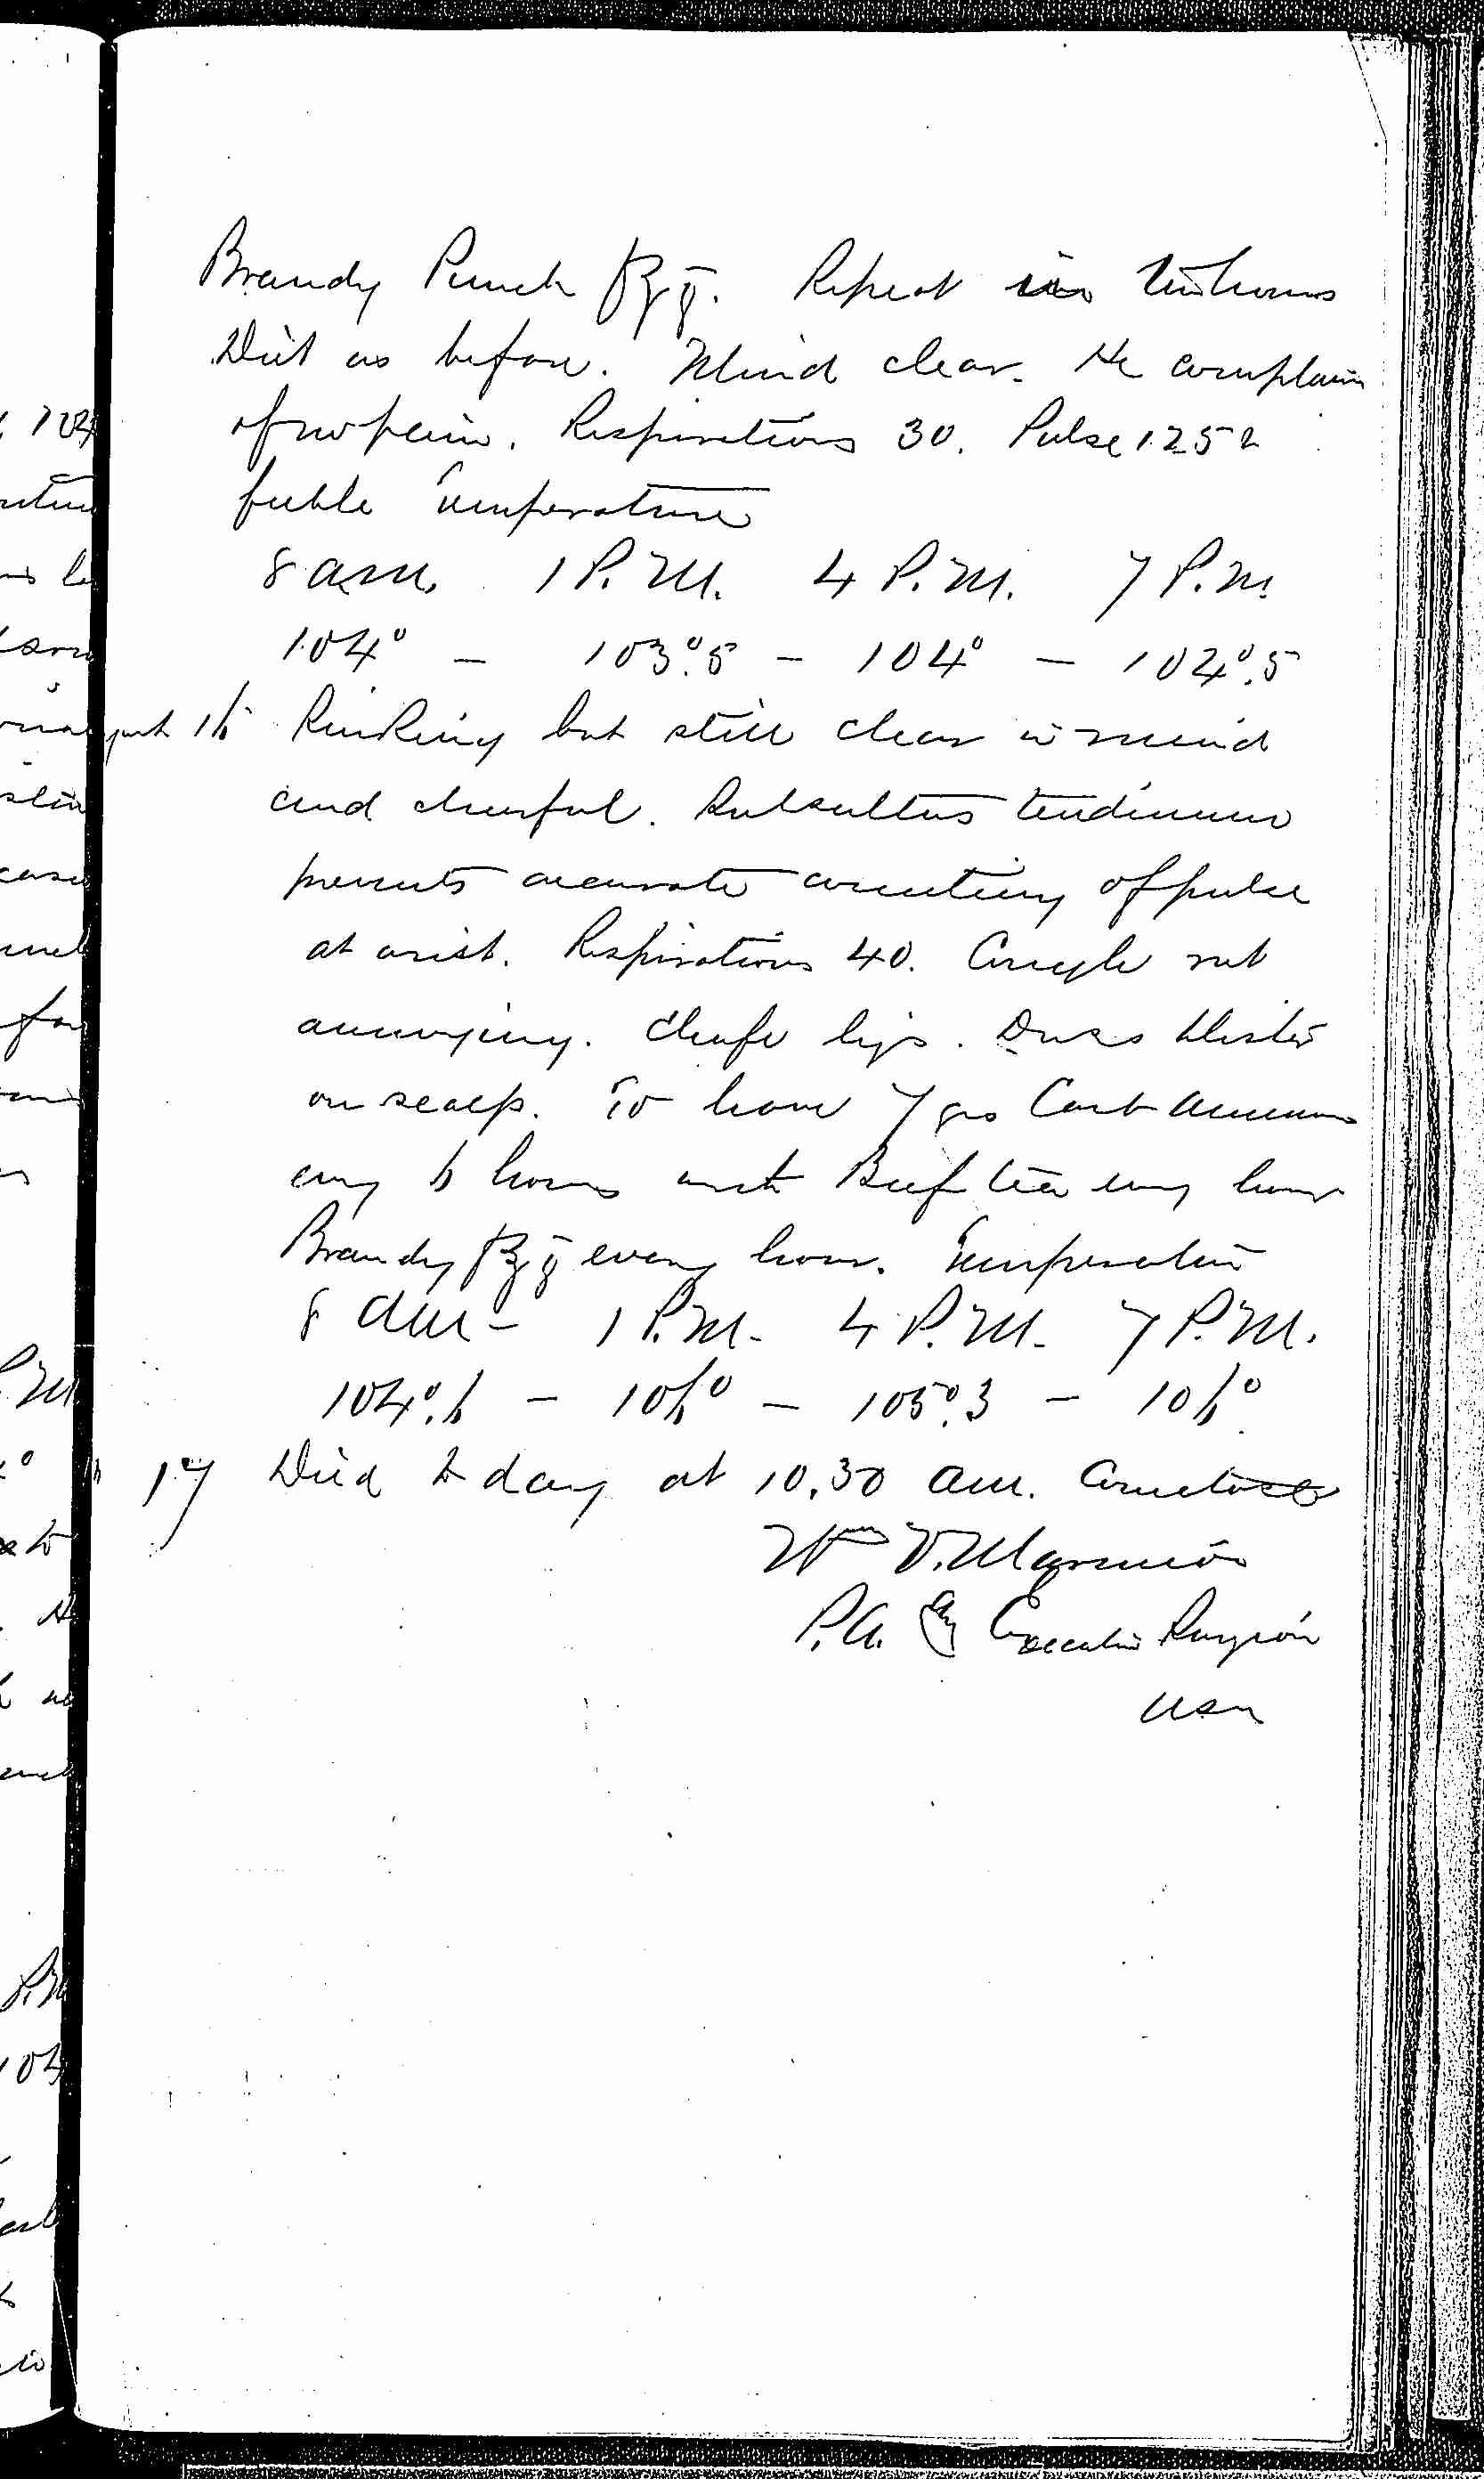 Brandy Punch f℥ij. Repeat in two hours
Diet as before. Mind clear. He complains
of no pain. Respirations 30. Pulse 125 &
feeble Temperature
8 a.m. 1 P.M. 4 P.M. 7 P.M.
104° – 103°.5 – 104° – 104°.5
16 Sinking but still clear in mind
and cheerful. Subsultus tendinum
prevents accurate counting of pulse
at wrist. Respirations 40. Cough not
annoying. Chafe legs. Dress blister
on scalp. To have 7 grs Carb Ammon
every 6 hours with Beef tea every hour
Brandy f℥ij every hour. Temperature
8 AM – 1 P.M. – 4 P.M. – 7 P.M.
104°.6 – 106° – 105°.3 – 106°
17 Died to day at 10.30 am. Comatose
Wm V. Marmion
P.A. & Executive Surgeon
USN